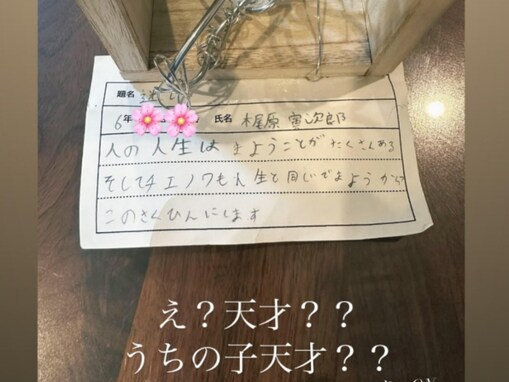 題名
6年 氏名 梶原 寅次郎
人の人生はまようことがたくさんある
そしてチエノワも人生と同じでまようから
このさくひんにします
え?天才??
うちの子天才??